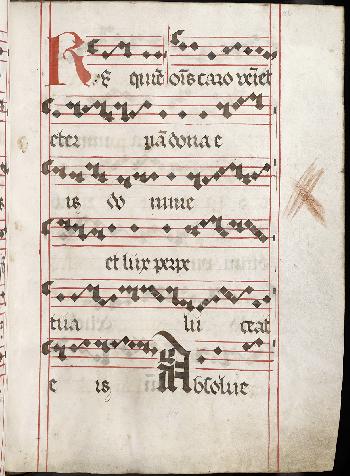 Req quiē oīs caro veīet
eter nā dona e
is do mine
et lux perpe
tua lu ceat
e is Absolue